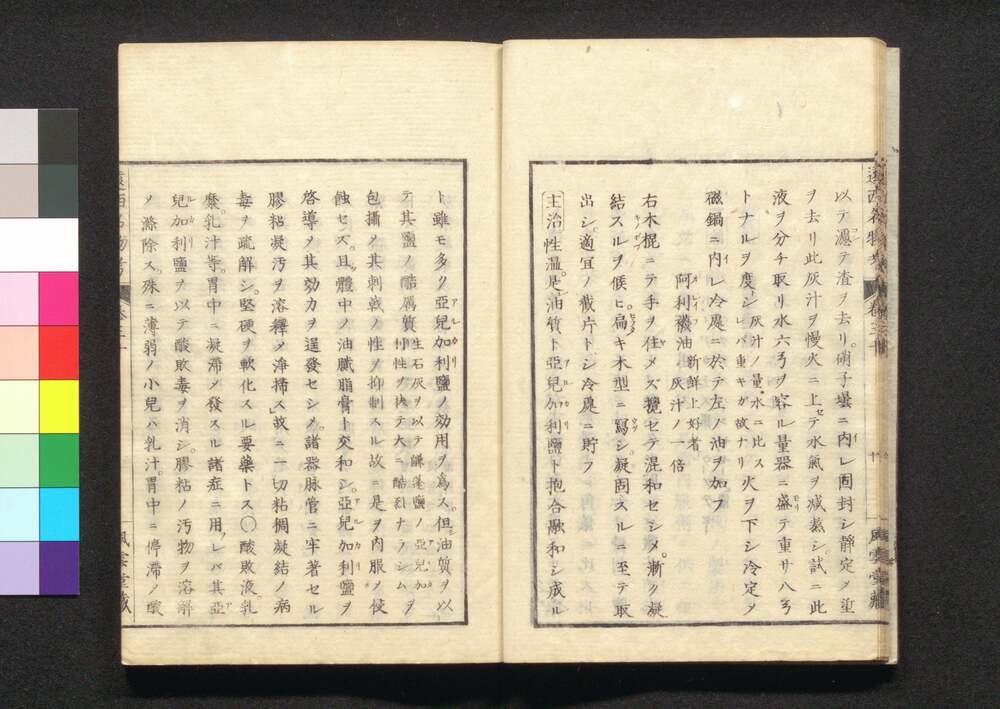 以テ濾テ渣ヲ去リ硝子壜ニ内レ固封シ静定メ
ヲ去リ此灰汁ヲ慢火ニ上セテ水氣ヲ減蒸シ試ニ此
液ヲ分チ取リ水六弓ヲ容ル量器ニ盛テ重サ八弓
トナルヲ度シ灰汁ノ量水ニ比スレバ重キガ故ナリ火ヲ下シ冷定メ
磁鍋ニ内レ冷處ニ於テ左ノ油ヲ加フ
阿利襪油新鮮上好者灰汁ノ一倍
右木棍ニテ手ヲ住メズ攪セテ混和セシメ漸ク凝
結スルヲ候ヒ扁キ木型ニ寫シ凝固スルニ至テ取
出シ適宜ノ截片トシ冷處ニ貯フ
主治性温是油質ト亞兒加利鹽ト抱合融和シ成ル
ト雖モ多ク亞兒加利鹽ノ効用ヲ為ス但油質ヲ以
テ其鹽ノ酷厲質生石灰ヲ以テ謙蓬鹽ノ亞兒加利性ヲ挾テ大ニ酷烈ナラシムヲ
包攝メ其刺戟ノ性ヲ抑制スル故ニ是ヲ内服メ使
蝕セズ且體中ノ油膩脂膏ト交和シ亞兒加利鹽ヲ
啓導メ其効力ヲ逞發セシメ諸器脉管ニ牢著セル
膠粘凝汚ヲ溶釋メ浄掃ス故ニ一切粘稠凝結ノ病
毒ヲ疏解シ堅硬ヲ軟化スル要藥トス〇酸敗液乳
糜乳汁等胃中ニ凝滞メ發スル諸症ニ用レバ其亞
兒加利鹽ヲ以テ酸敗毒ヲ消シ膠粘ノ汚物ヲ溶解
メ滌除ス殊ニ薄弱ノ小兒ハ乳汁胃中ニ停滞メ壊